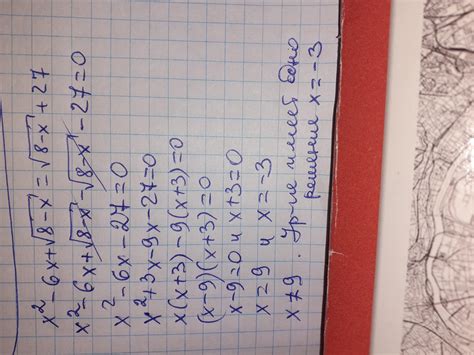 x² - 6x + √8-x = √8-x + 27
x² - 6x + √8-x - √8-x - 27 = 0
x² - 6x - 27 = 0
x² + 3x - 9x - 27 = 0
x(x+3) - 9(x+3) = 0
(x-9)(x+3) = 0
x-9=0 и x+3=0
x = 9 и x = -3
x ≠ 9 . Ур-ие имеет одно
решение x = -3